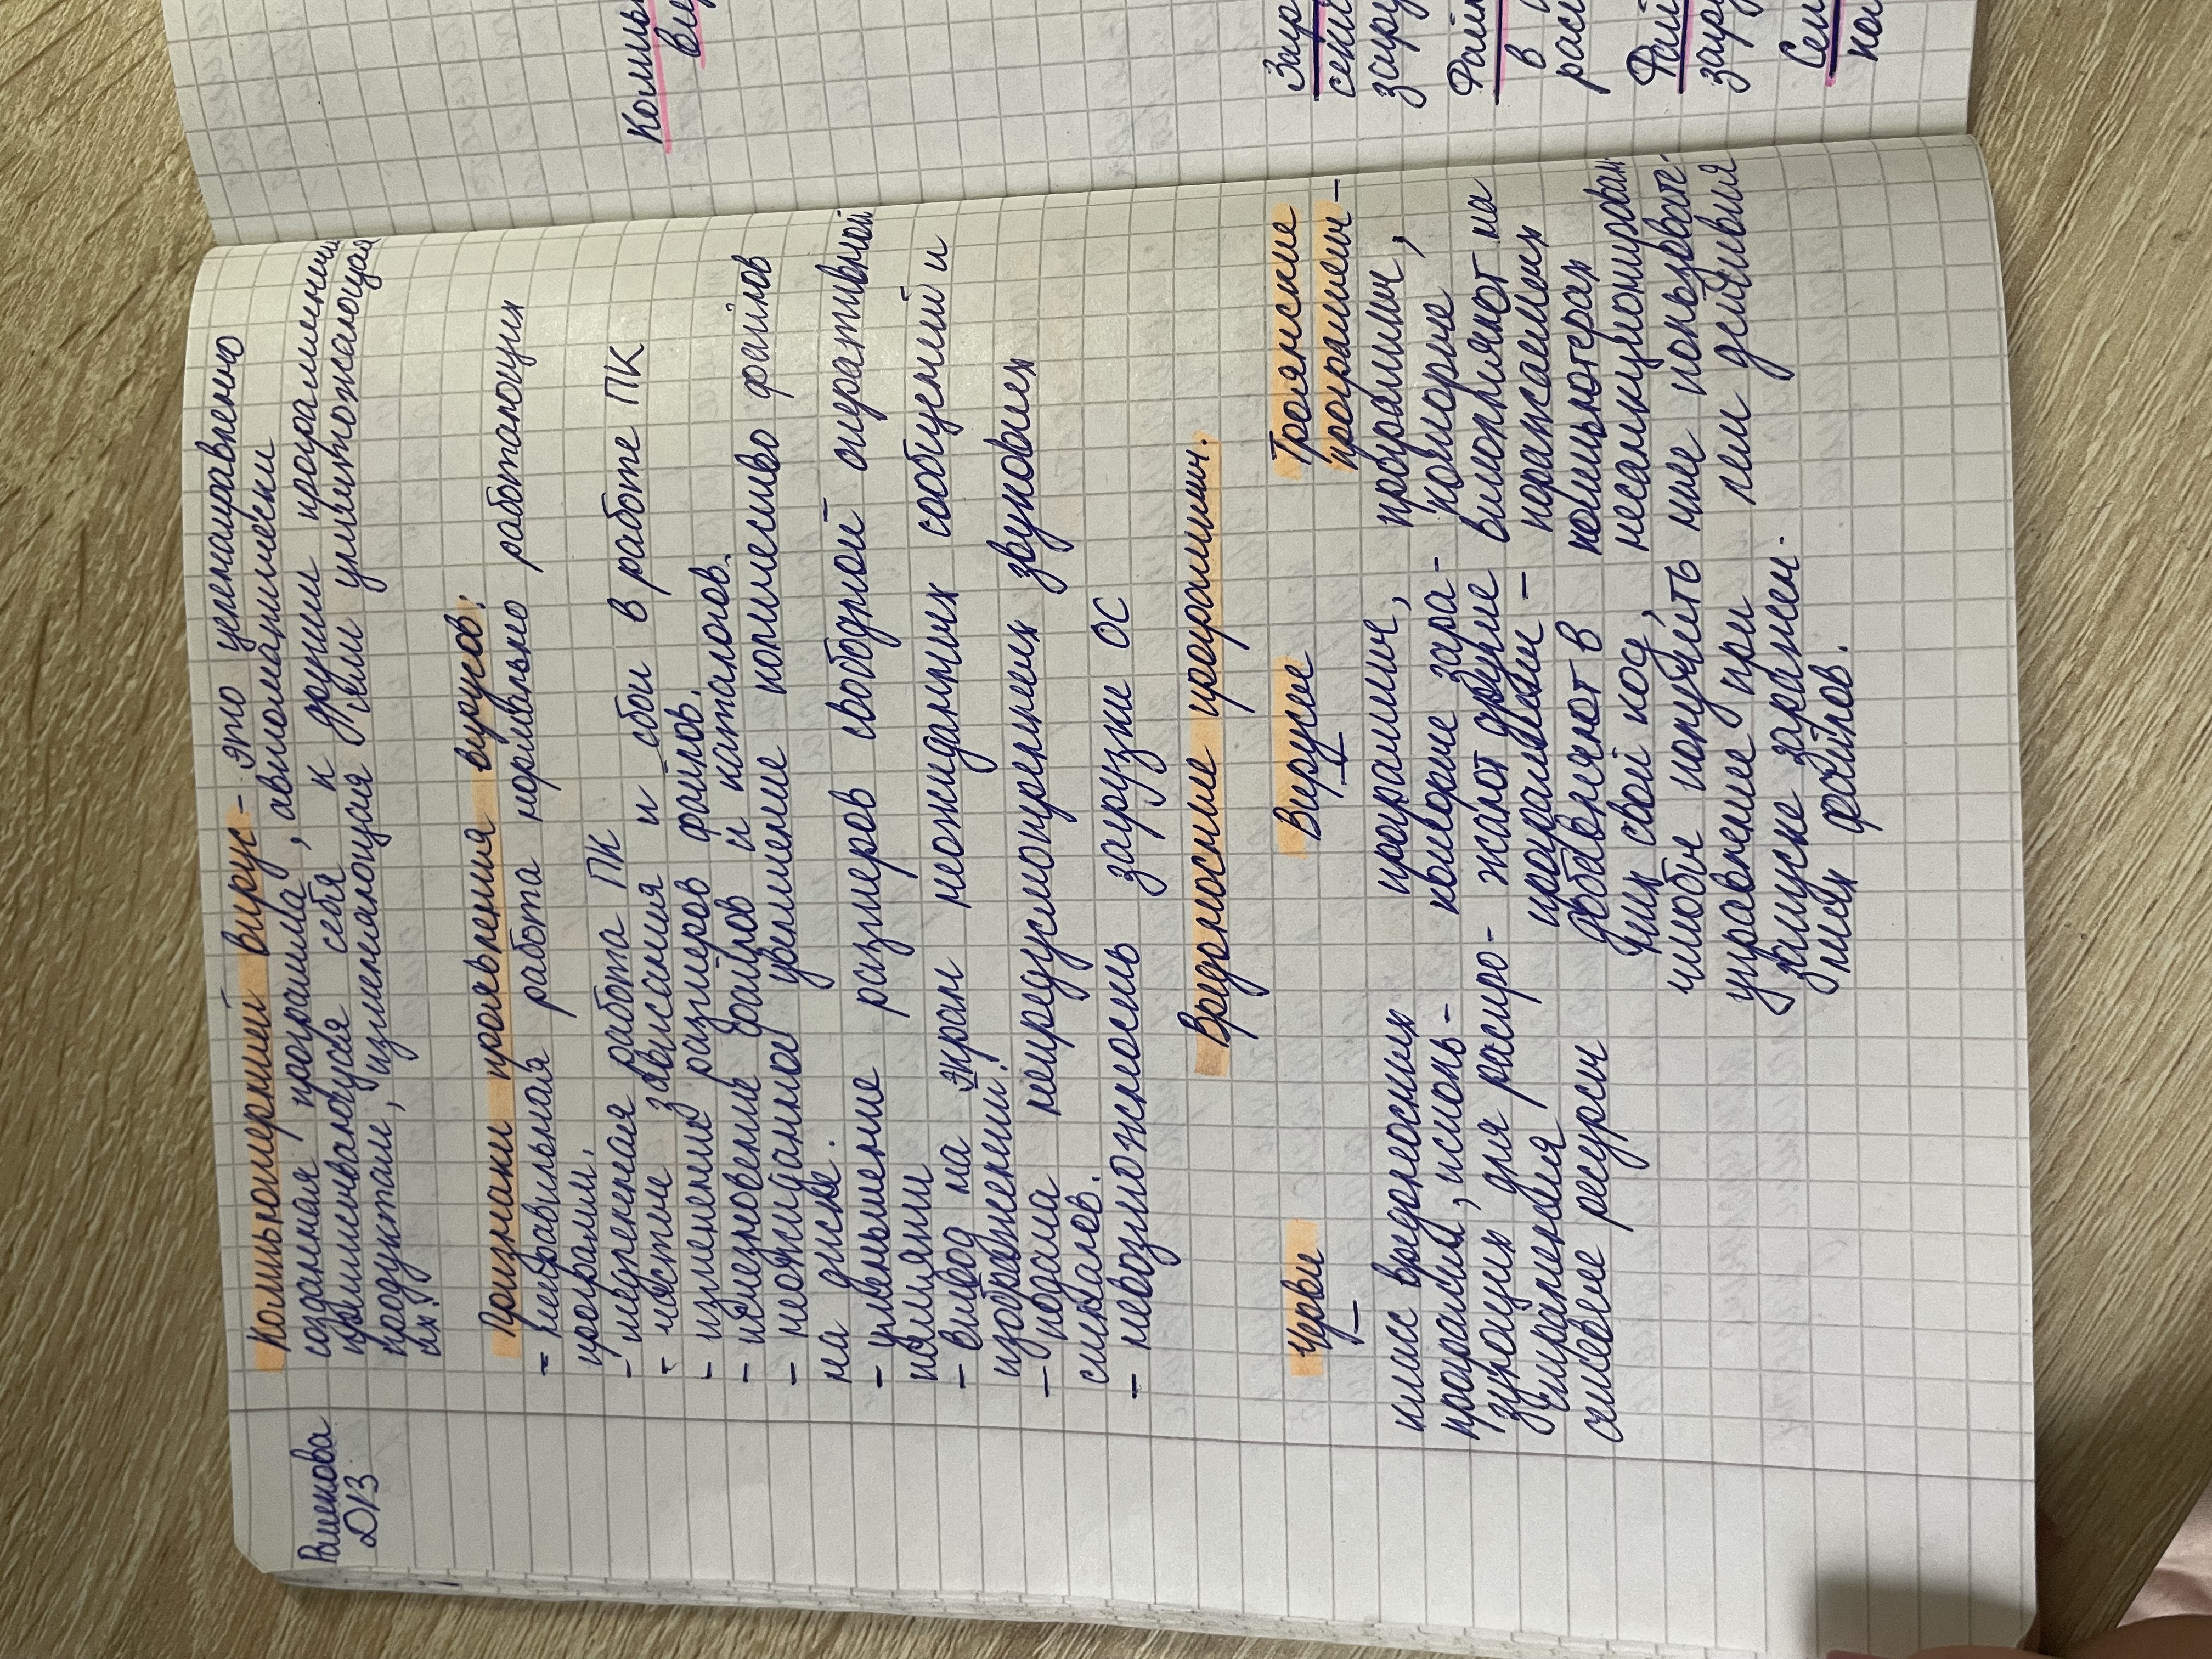 ДВ
Компьютерный вирус - это целенаправленно
созданная программа, автоматически
приписывающуюся себя к другим программным
продуктам, изменяющуюся или уничтожающая
их.
Признаки проявления вирусов:
- неправильная работа нормально работающих
программ.
- медленная работа ПК
- частые зависания и сбои в работе ПК
- изменение размеров файлов.
- исчезновение файлов и каталогов.
- неожиданное увеличение количество файлов
на диске.
- уменьшение размеров свободной оперативной
памяти
- вывод на экран неожиданных сообщений и
изображений.
- подача непредусмотренных звуковых
сигналов.
- невозможность загрузки ОС
Вредоносные программы.
Черви
класс вредоносных
программ, исполь-
зующих для распро-
странения
сетевые ресурсы
Вирусы
программы,
которые зара-
жают другие
программы -
добавляют в
них свой код,
чтобы получить
управление при
запуске заражен-
ных файлов.
Троянские
программы -
программы,
которые
выполняют на
поражаемых
компьютерах
несанкционирован
ные пользовате-
лем действия
Компь
Ви
Загр
сект
загру
Файл
в
расп
Файл
загр
Сет
ко